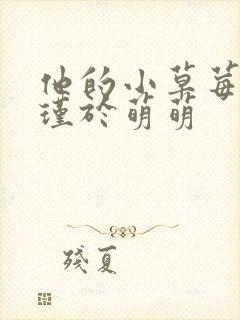 他的小草莓
瑾於萌萌
殘夏